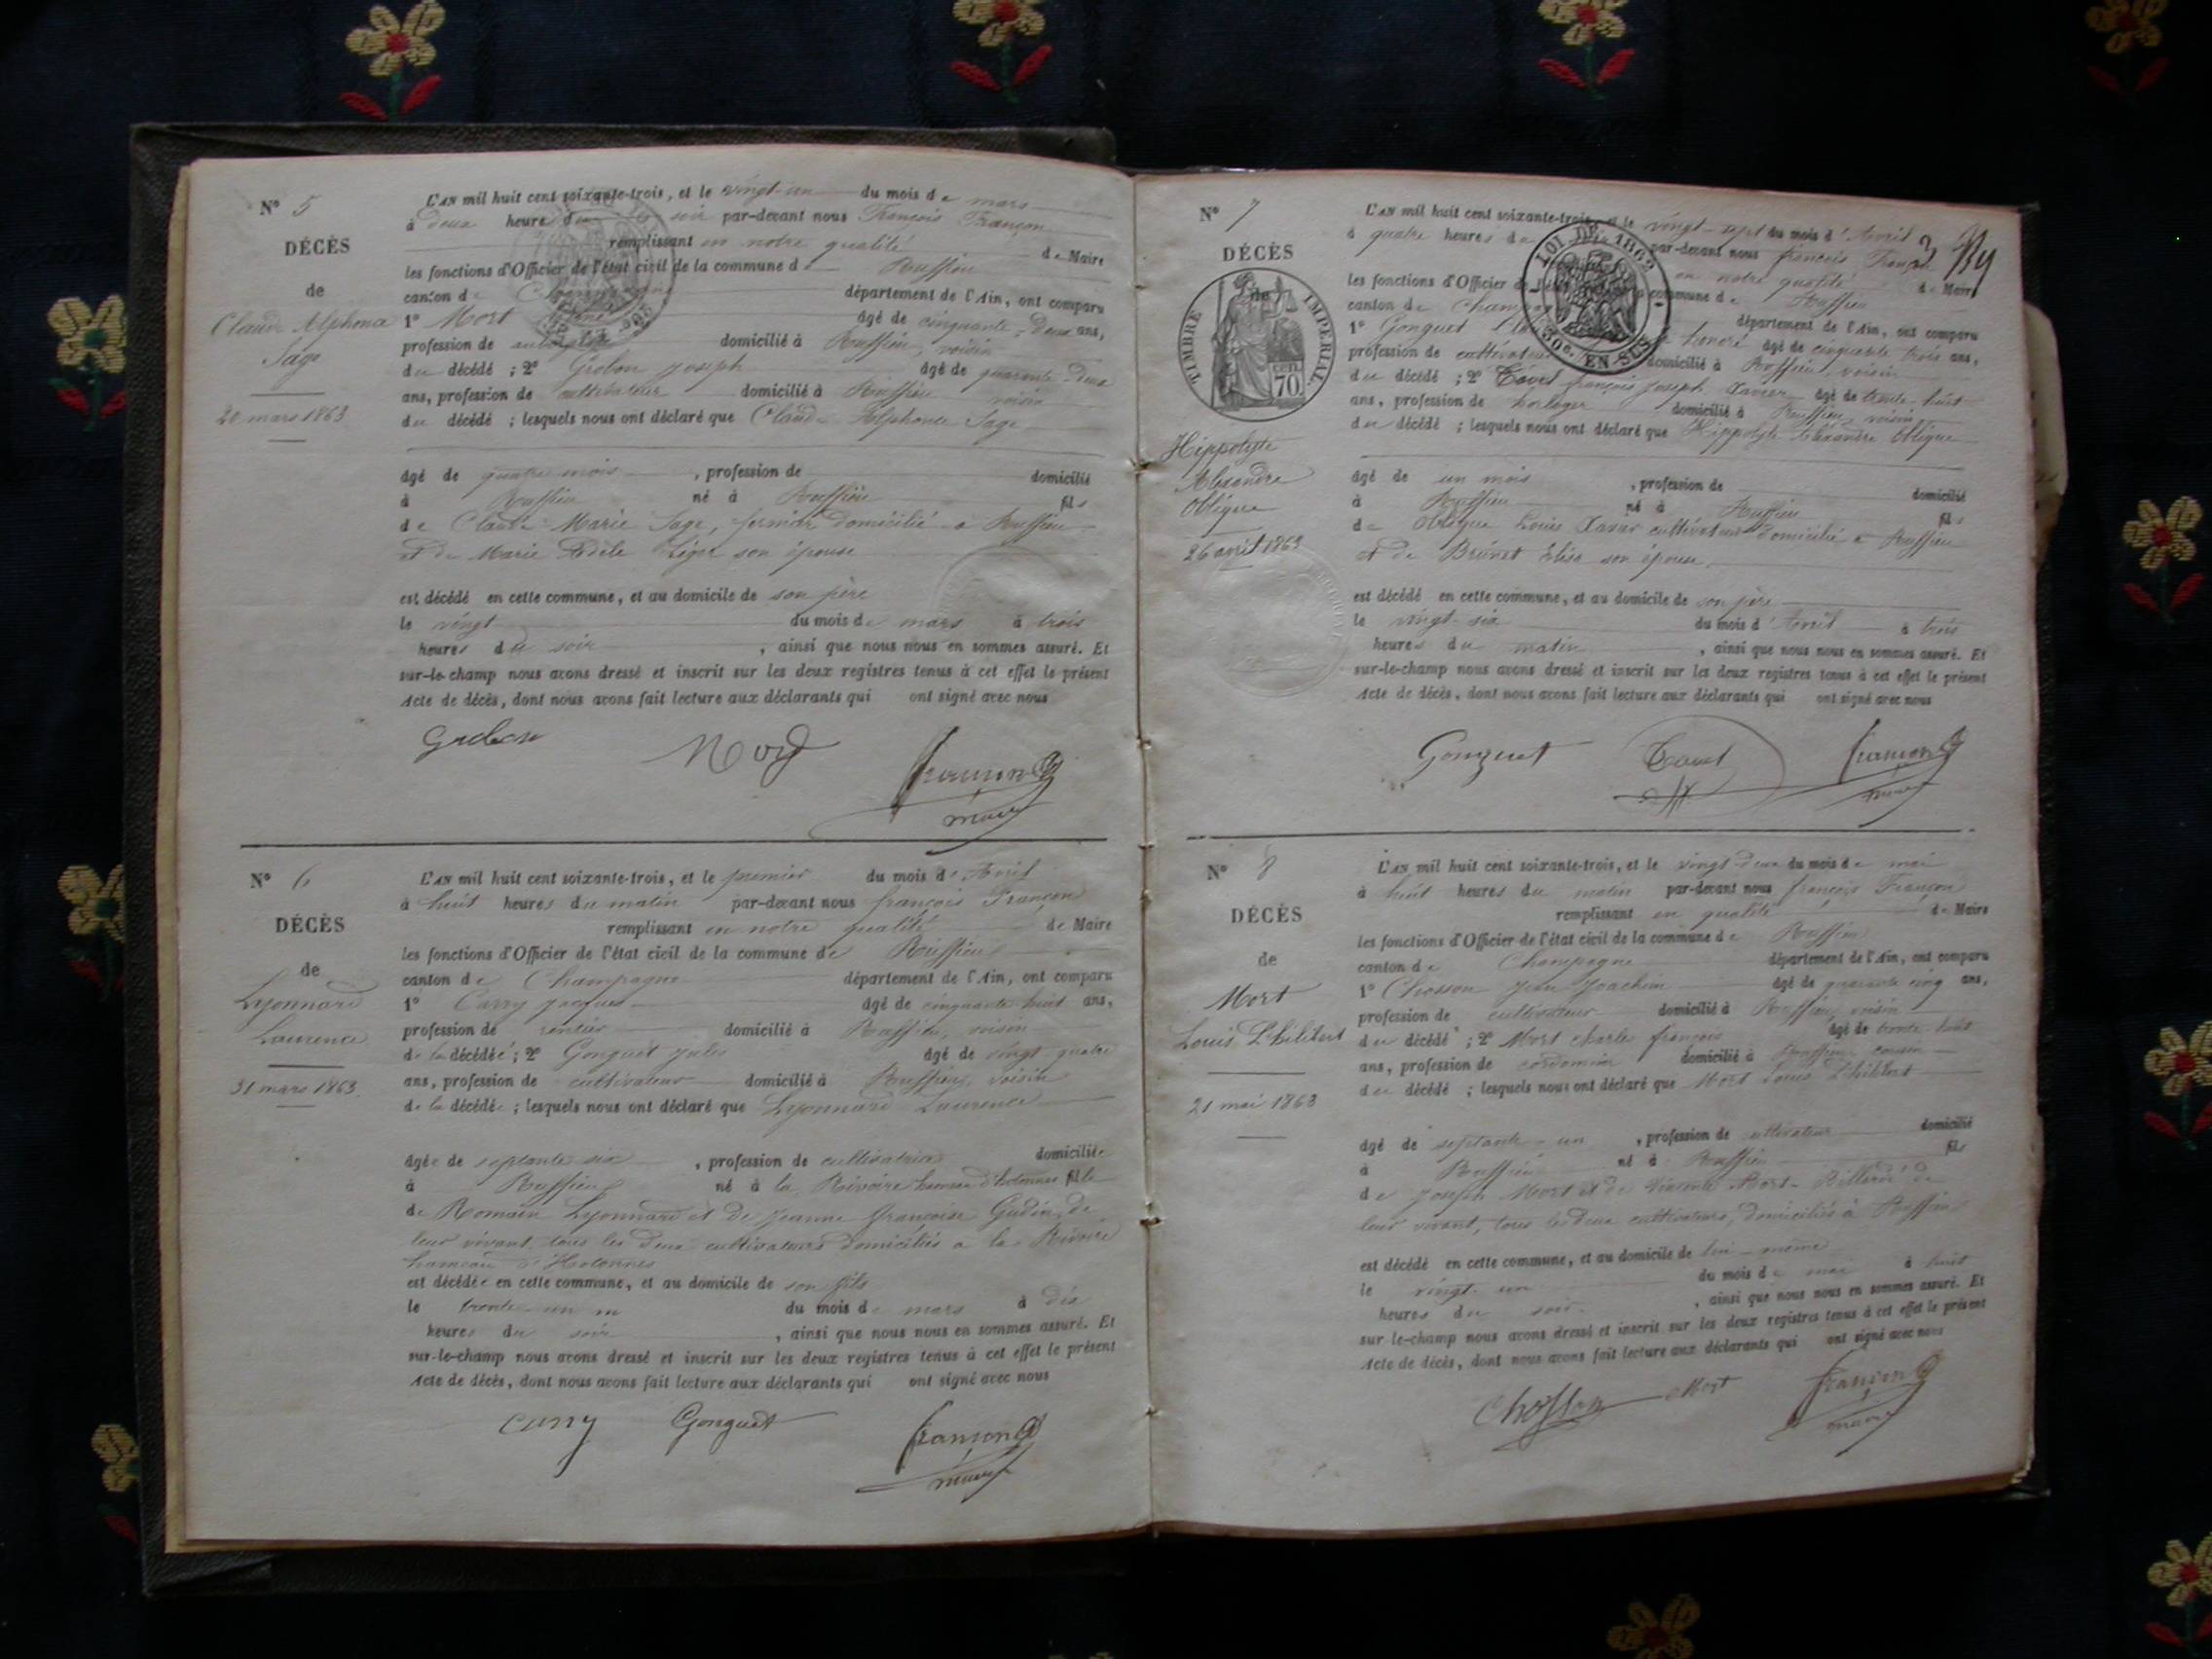 N° 5
DÉCÈS
de
Claude Alphonse
Sage
20 mars 1863
L'AN mil huit cent soixante-trois, et le vingt-un du mois de mars
à deux heures du soir par-devant nous François Françon
remplissant en notre qualité de Maire
les fonctions d'Officier de l'état civil de la commune de Ruffieu
canton de Champagne département de l'Ain, ont comparu
1° Mort âgé de cinquante-deux ans,
profession de domicilié à Ruffieu, voisin
du décédé ; 2° Grobon Joseph âgé de quarante deux
ans, profession de cultivateur domicilié à Ruffieu voisin
du décédé ; lesquels nous ont déclaré que Claude Alphonse Sage
âgé de quatre mois , profession de domicilié
à Ruffieu né à Ruffieu fils
de Claude Marie Sage, fermier domicilié a Ruffieu
et de Marie Adèle Léger son épouse
est décédé en cette commune, et au domicile de son père
le vingt du mois de mars à trois
heures du soir , ainsi que nous nous en sommes assuré. Et
sur-le-champ nous avons dressé et inscrit sur les deux registres tenus à cet effet le présent
Acte de décès, dont nous avons fait lecture aux déclarants qui ont signé avec nous
Grobon Mort Françon
maire
N° 6
DÉCÈS
de
Lyonnard
Laurence
31 mars 1863
L'AN mil huit cent soixante-trois, et le premier du mois d'Avril
à huit heures du matin par-devant nous françois Françon
remplissant en notre qualité de Maire
les fonctions d'Officier de l'état civil de la commune de Ruffieu
canton de Champagne département de l'Ain, ont comparu
1° Carry Jacques âgé de cinquante huit ans,
profession de rentier domicilié à Ruffieu, voisin
de la décédée ; 2° Gonguet Jules âgé de vingt quatre
ans, profession de cultivateur domicilié à Ruffieu, voisin
de la décédée ; lesquels nous ont déclaré que Lyonnard Laurence
âgée de septante six , profession de cultivatrice domiciliée
à Ruffieu né à la Rivoire hameau d'hotonnes fille
de Romain Lyonnard et de Jeanne françoise Gudin, de
leur vivant tous les deux cultivateurs domiciliés a la Rivoire
hameau d'Hotonnes
est décédée en cette commune, et au domicile de son fils
le trente-un du mois de mars à dix
heures du soir , ainsi que nous nous en sommes assuré. Et
sur-le-champ nous avons dressé et inscrit sur les deux registres tenus à cet effet le présent
Acte de décès, dont nous avons fait lecture aux déclarants qui ont signé avec nous
Carry Gonguet françon
maire
N° 7
DÉCÈS
de
TIMBRE IMPÉRIAL
CEN. 70
Hippolyte
Alexandre
Obligue
26 avril 1863
L'AN mil huit cent soixante-trois, et le vingt-sept du mois d'Avril
à quatre heures du par-devant nous françois Françon
en notre qualité de Maire
LOI DE 1862
50c. EN SUS
les fonctions d'Officier de l'état commune de Ruffieu
canton de Champagne département de l'Ain, ont comparu
1° Gonguet honoré âgé de cinquante trois ans,
profession de cultivateur domicilié à Ruffieu voisin
du décédé ; 2° Tavel françois Joseph Xavier âgé de trente-huit
ans, profession de horloger domicilié à Ruffieu, voisin
du décédé ; lesquels nous ont déclaré que Hippolyte Alexandre Obligue
âgé de un mois , profession de domicilié
à Ruffieu né à Ruffieu fils
de Obligue Louis Xavier cultivateur domicilié a Ruffieu
et de Brunet Elisa son épouse.
est décédé en cette commune, et au domicile de son père
le vingt-six du mois d'Avril à trois
heures du matin , ainsi que nous nous en sommes assuré. Et
sur-le-champ nous avons dressé et inscrit sur les deux registres tenus à cet effet le présent
Acte de décès, dont nous avons fait lecture aux déclarants qui ont signé avec nous
Gonguet Tavel françon
maire
N° 8
DÉCÈS
de
Mort
Louis Philibert
21 mai 1863
L'AN mil huit cent soixante-trois, et le vingt-deux du mois de mai
à huit heures du matin par-devant nous françois Françon
remplissant en qualité de Maire
les fonctions d'Officier de l'état civil de la commune de Ruffieu
canton de Champagne département de l'Ain, ont comparu
1° Chosson Jean Joachim âgé de quarante cinq ans,
profession de cultivateur domicilié à Ruffieu, voisin
du décédé ; 2° Mort charles françois âgé de trente huit
ans, profession de cordonnier domicilié à Ruffieu, cousin
du décédé ; lesquels nous ont déclaré que Mort Louis Philibert
âgé de septante-un , profession de cultivateur domicilié
à Ruffieu né à Ruffieu fils
de Joseph Mort et de Mort-Billerdi de
leur vivant, tous les deux cultivateurs, domiciliés à Ruffieu
est décédé en cette commune, et au domicile de lui-même
le vingt-un du mois de mai à huit
heures du soir , ainsi que nous nous en sommes assuré. Et
sur-le-champ nous avons dressé et inscrit sur les deux registres tenus à cet effet le présent
Acte de décès, dont nous avons fait lecture aux déclarants qui ont signé avec nous
Chosson Mort françon
maire